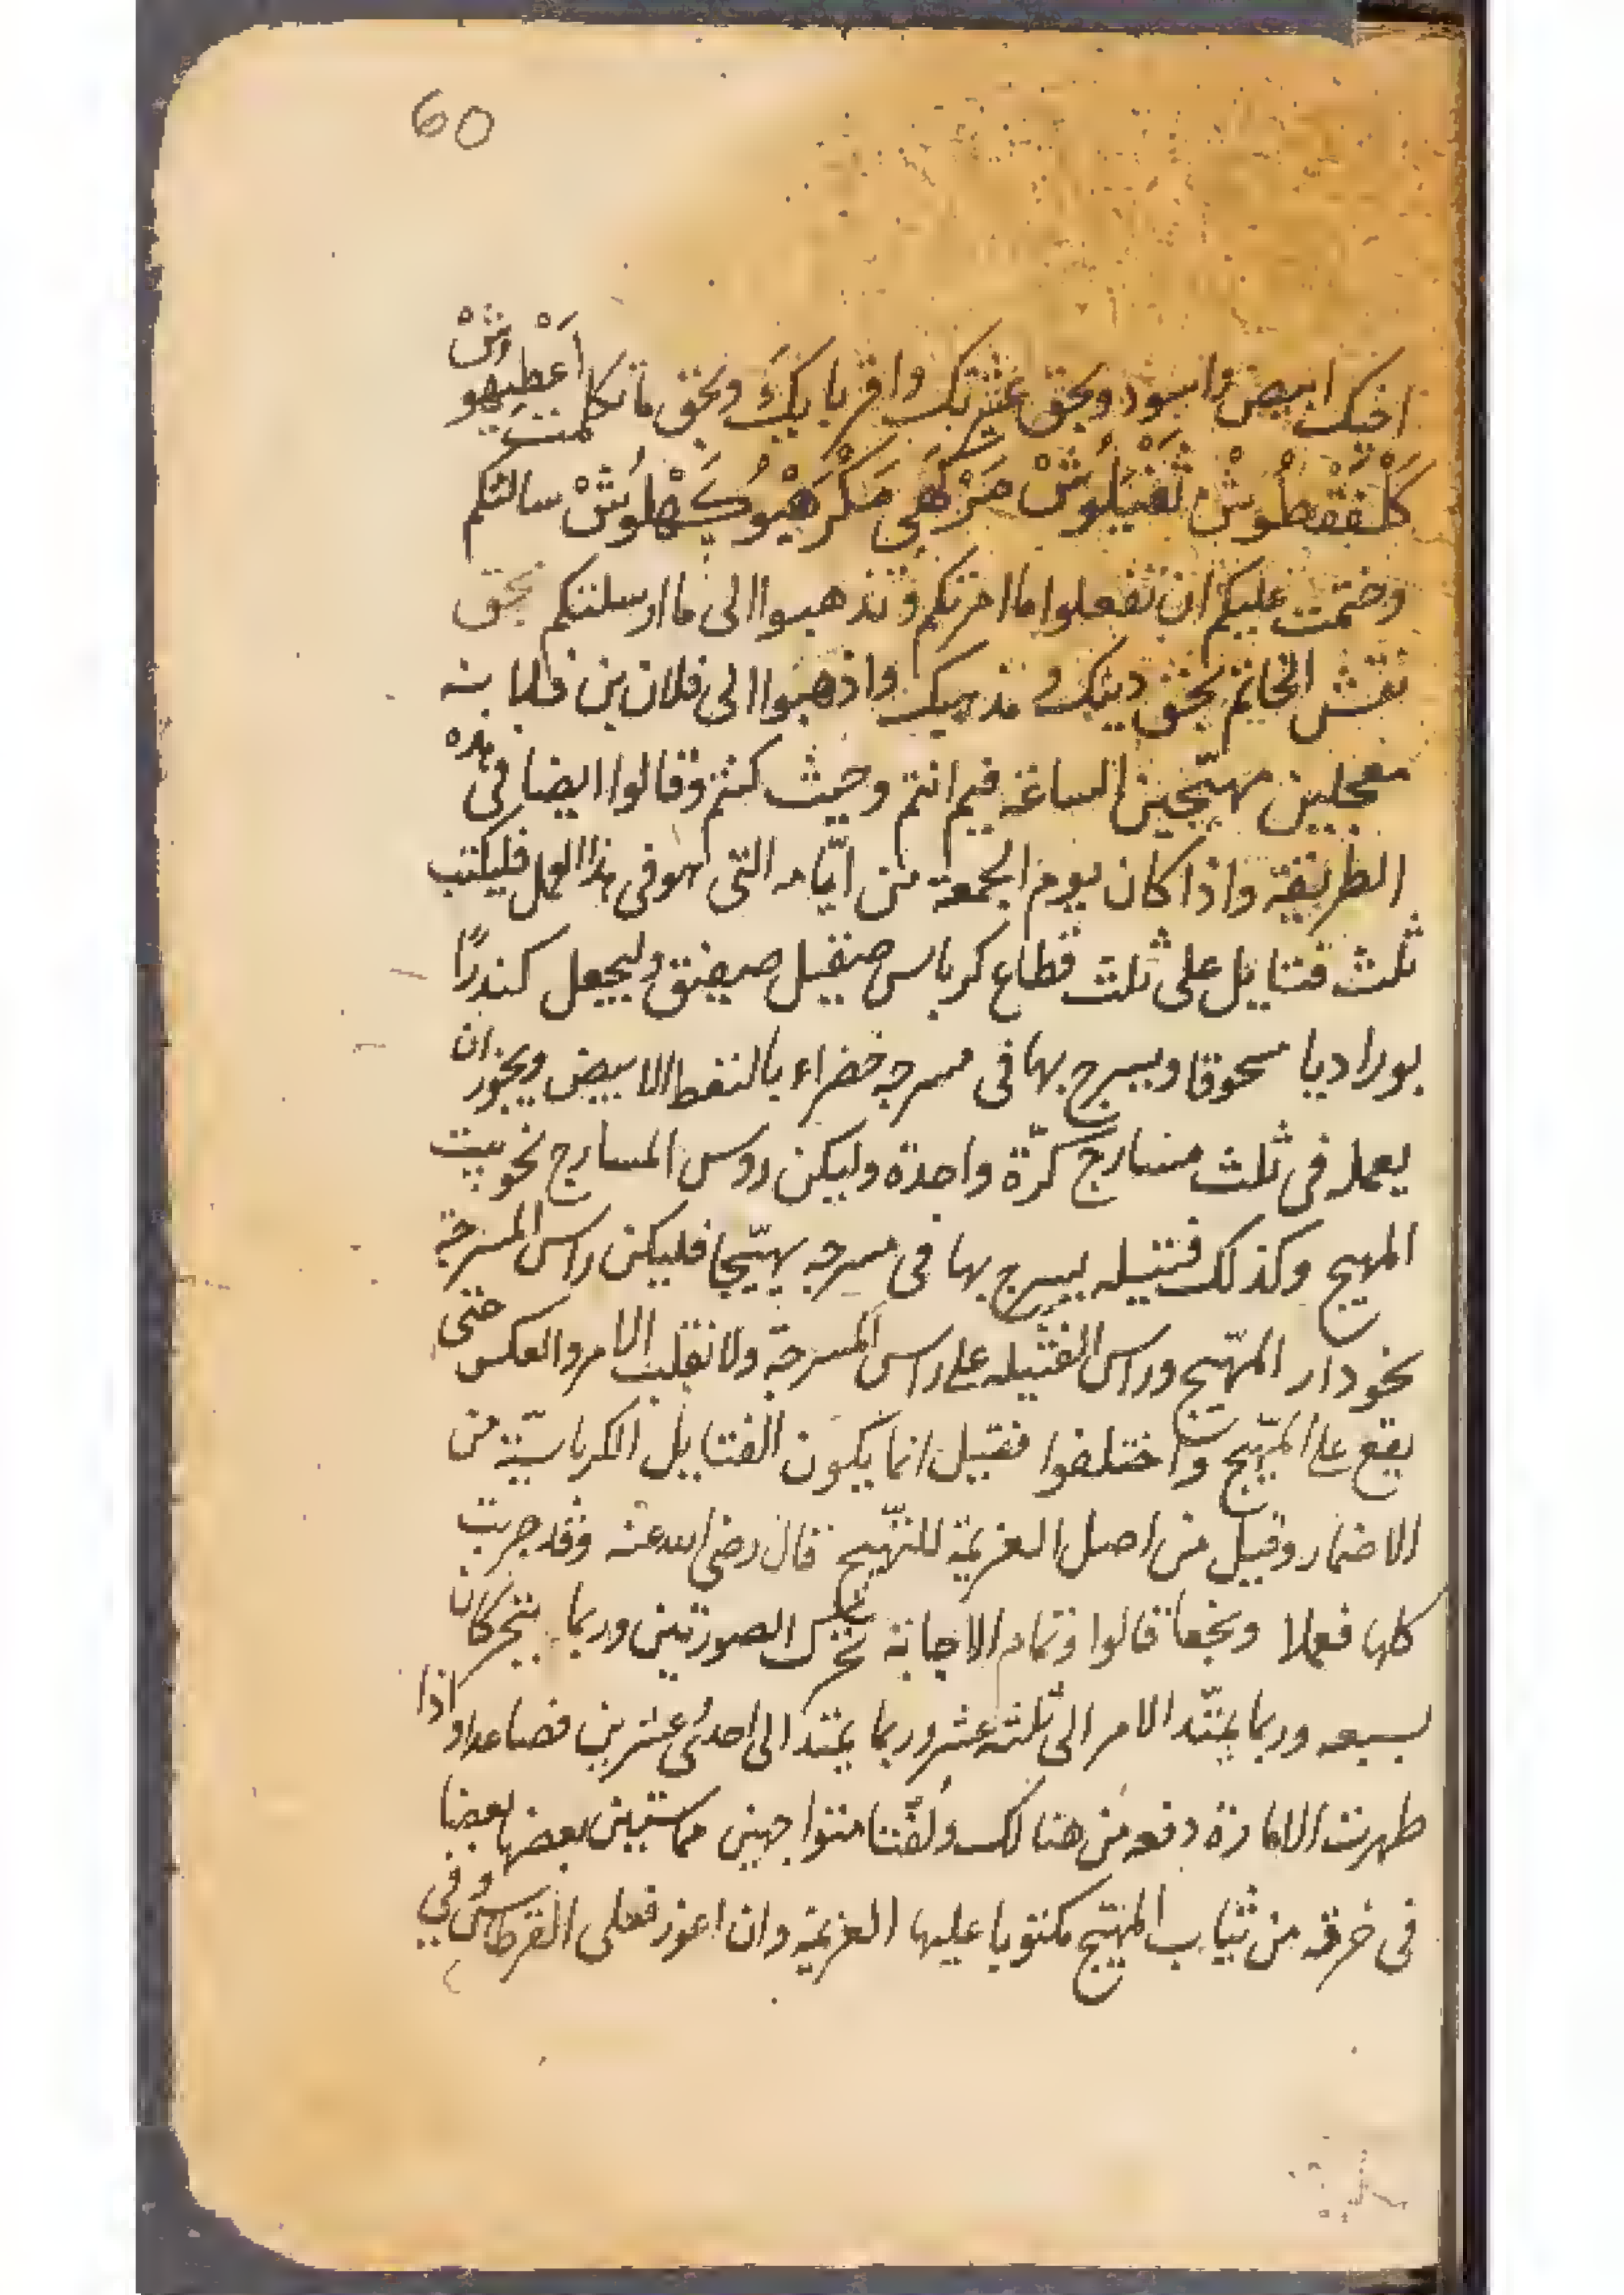 60
اخيك ابيض واسود وبحق عشيرتك واقربايك وبحق ما تكلمت اعطيهوش
كَلْفَقْطُوشْ ثَقْيَلُوشْ مَرْكَهِي مَكْرَهْيُو كَهْلُوشْ سالتكم
وختمت عليكم ان تفعلوا ما امرتكم وتذهبوا الى ما ارسلتكم بحق
نقش الخاتم بحق دينك ومذهبك واذهبوا الى فلان بن فلانه
معجلين مهيّجين الساعه فيم انتم وحيث كنتم وقالوا ايضا فى هذه
الطريقة واذا كان يوم الجمعة من ايّامه التى هو فى هذا العمل فليكتب
ثلث فتايل على ثلث قطاع كرباس صقيل صفيق وليجعل كندرًا
بوراديا مسحوقا ويسرج بها فى مسرجه خضراء بالنفط الابيض ويجوز ان
يعمله فى ثلث مسارج كرّة واحدة وليكن روس المسارج نحو بيت
المهيج وكذلك فتيله يسرج بها فى مسرجه يهيّجا فليكن راس المسرجة
نحو دار المهيّج وراس الفتيله على راس المسرجة ولا تقلب الامر والعكس حتى
يقع على المهيّج واختلفوا فقيل انما يكون الفتايل الكرباسيّة من
الاضمار وقيل من اصل العزيمة للتهيّج قال رضى الله عنه وقد جربت
كلها فعملا ونجعا قالوا وتمام الاجابة تحرك الصورتين وربما يتحركان
لسبعه وربما يمتدّ الامر الى ثلثه عشر وربما يمتد الى احدى عشرين فصاعدا واذا
ظهرت الامارة دفعه من هنالك ولفّتا متواجهين مماستين بعضها بعضا
فى خرقه من ثياب المهيّج مكتوبا عليها العزيمة وان اعوز فعلى القرطاس وفي